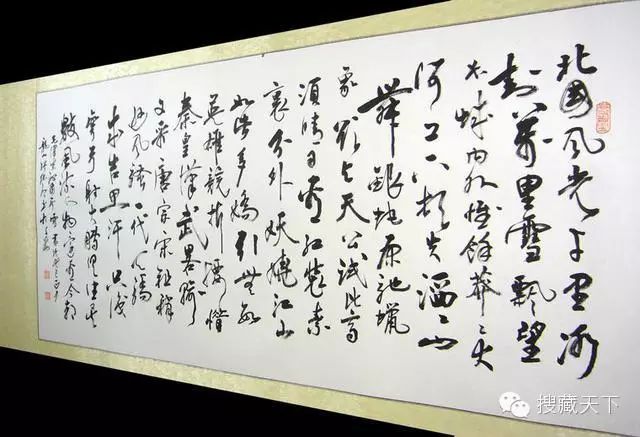 北国风光千里冰
封萬里雪飄望
长城内外惟餘莽〻大
河上下顿失滔〻山
舞银蛇原驰蜡
象欲与天公试比高
须晴日看红装素
裹分外妖娆江山
如此多娇引無数
英雄竞折腰惜
秦皇漢武略输
文采唐宗宋祖稍
逊风骚一代天骄
成吉思汗只识
弯弓射大雕俱往矣
数风流人物還看今朝
搜藏天下